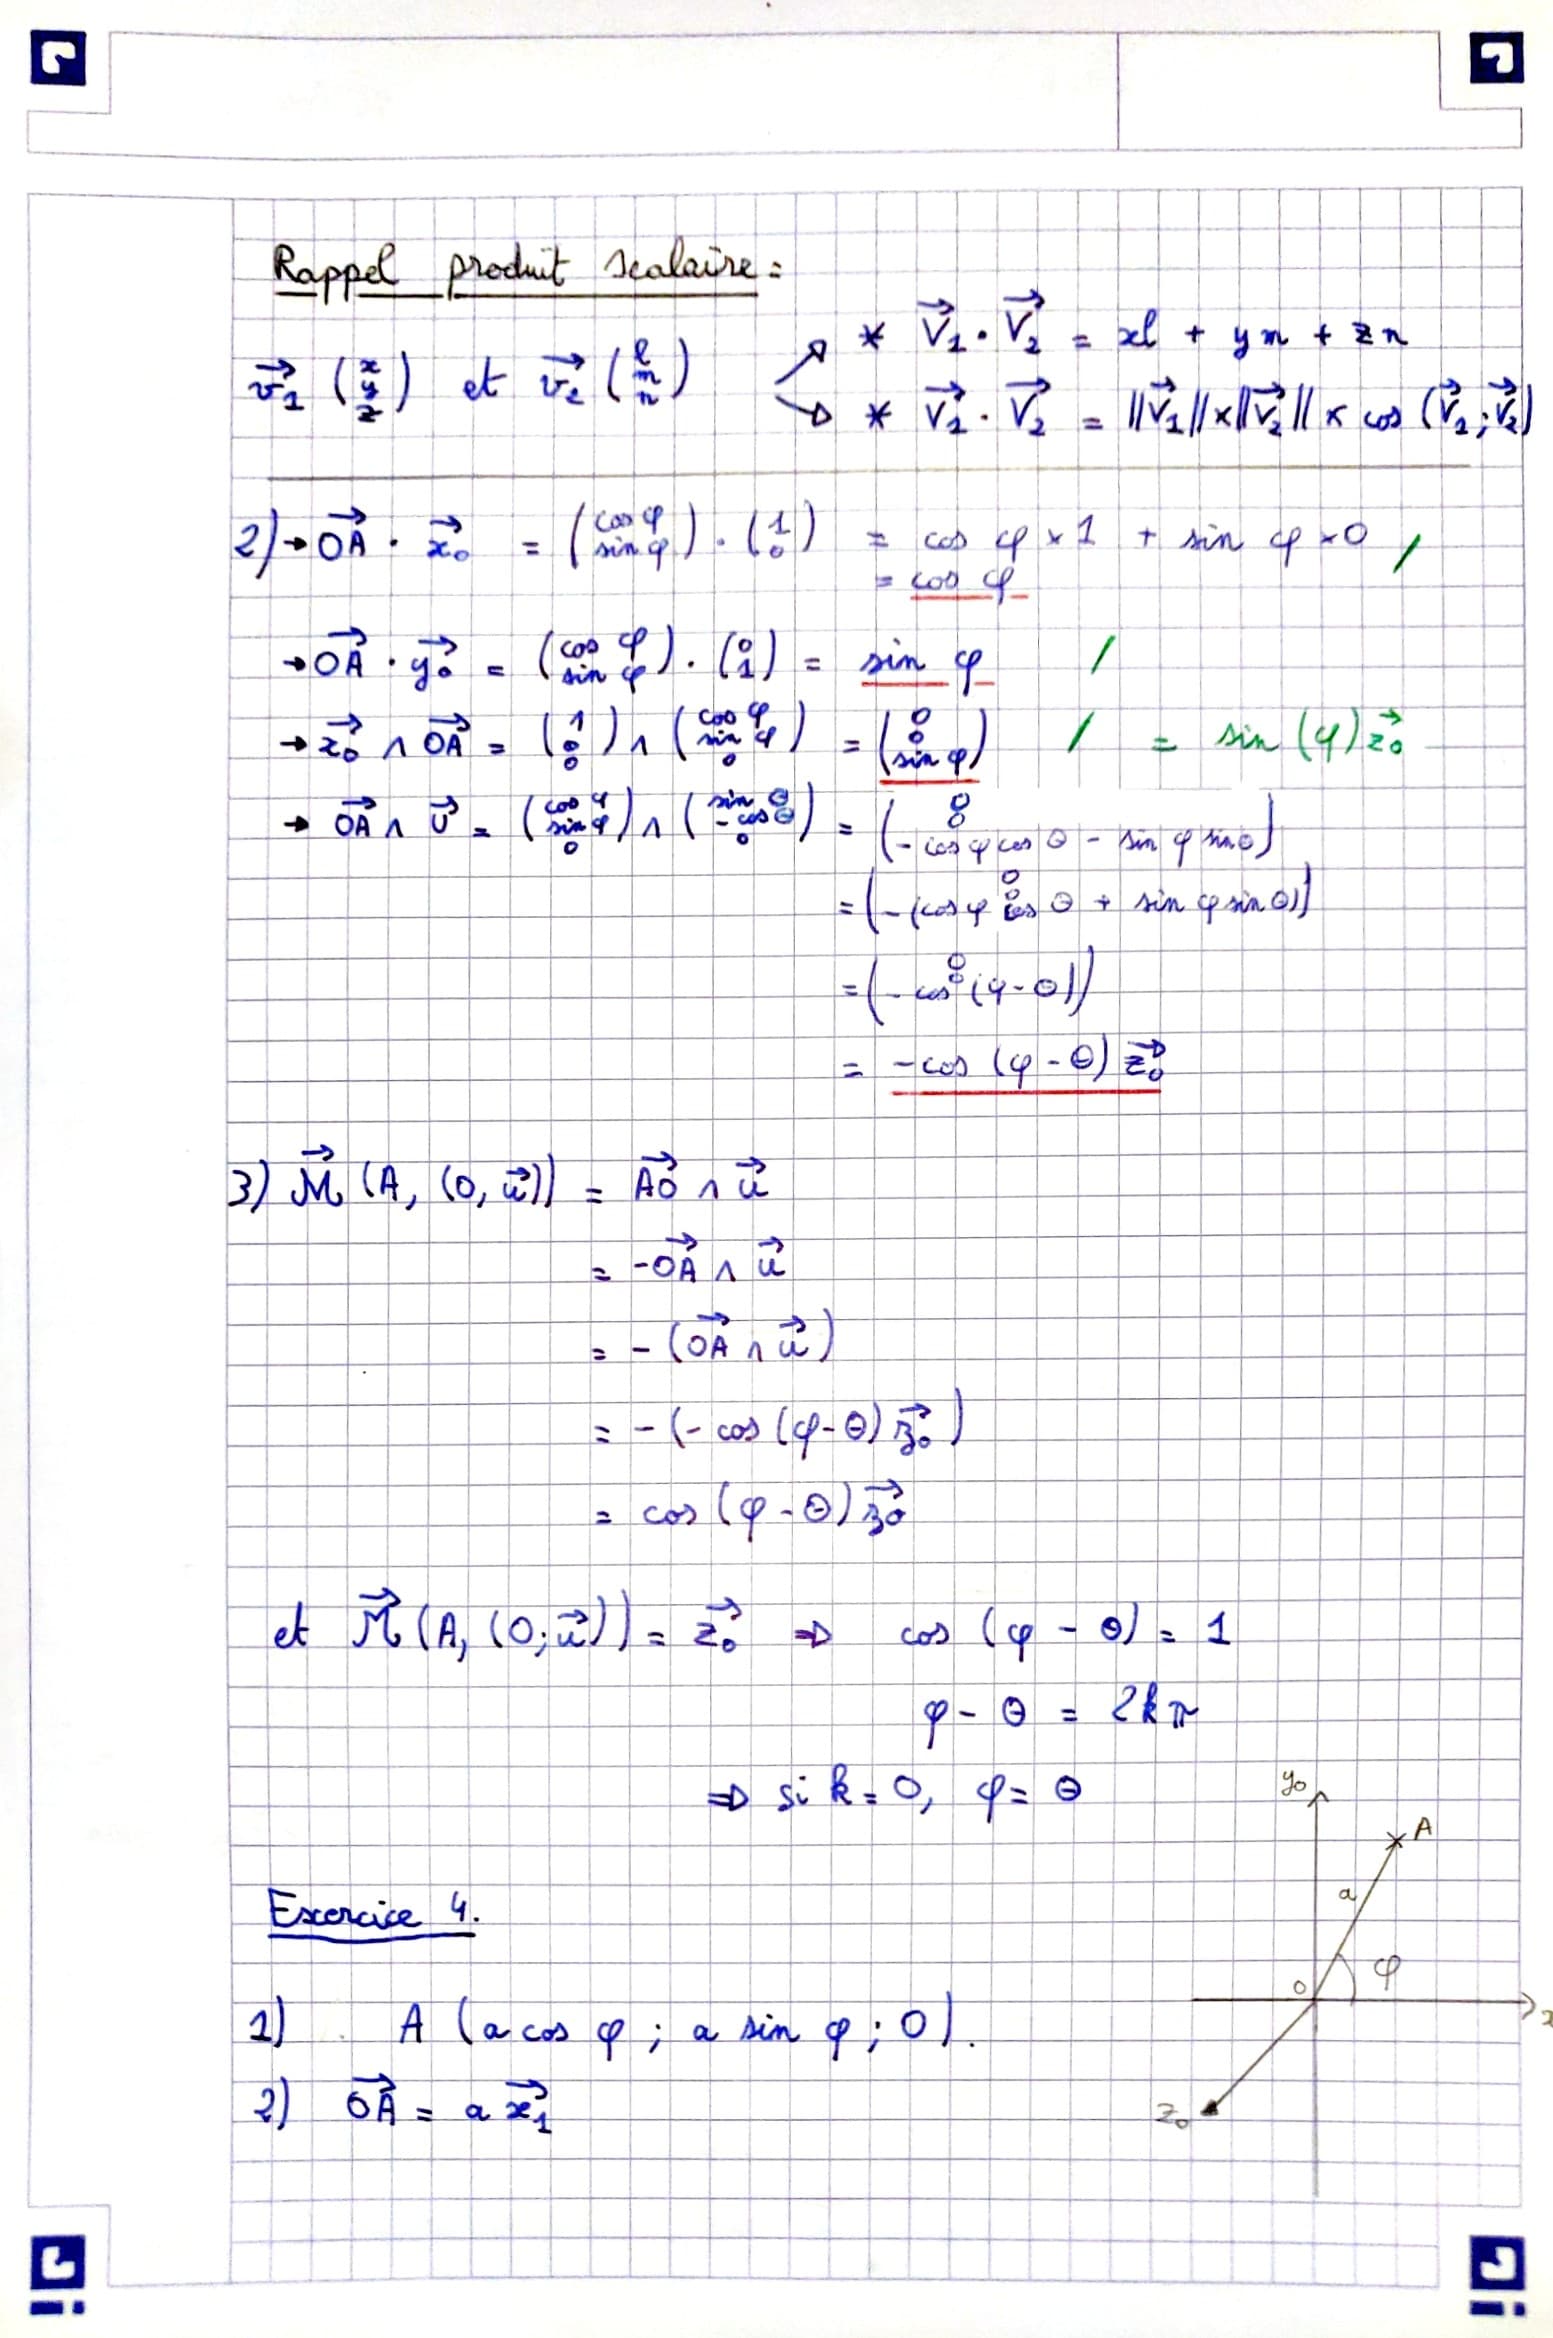 Rappel produit scalaire :
→v₁ (x y z) et →v₂ (l m n)
* →V₁ . →V₂ = xl + ym + zn
* →V₁ . →V₂ = ||→V₁|| x ||→V₂|| x cos (→V₁ ; →V₂)
2) → →OA . →x₀ = (cos φ sin φ) . (1 0) = cos φ x 1 + sin φ x 0 /
= cos φ
→ →OA . →y₀ = (cos φ sin φ) . (0 1) = sin φ /
→ →x₀ ∧ →OA = (1 0 0) ∧ (cos φ sin φ 0) = (0 0 sin φ) / = sin (φ) →z₀
→ →OA ∧ →U = (cos φ sin φ 0) ∧ (sin θ -cos θ 0) = (0 0 -cos φ cos θ - sin φ sin θ)
= (0 0 -(cos φ cos θ + sin φ sin θ))
= (0 0 -cos (φ-θ))
= -cos (φ-θ) →z₀
3) →M (A, (O, →u)) = →AO ∧ →u
= -→OA ∧ →u
= - (→OA ∧ →u)
= - (- cos (φ-θ) →z₀)
= cos (φ-θ) →z₀
et →M (A, (O; →u)) = →z₀ ⇒ cos (φ - θ) = 1
φ - θ = 2kπ
⇒ si k = 0, φ = θ
y₀
A
a
Exercice 4.
φ
O
x
1) A (a cos φ ; a sin φ ; 0).
2) →OA = a →x₁
z₀